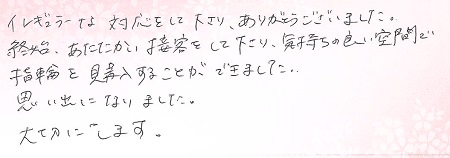 イレギュラーな対応をして下さり、ありがとうございました。
終始、あたたかい接客をして下さり、気持ちの良い空間で
指輪を購入することができました。
思い出になりました。
大切にします。